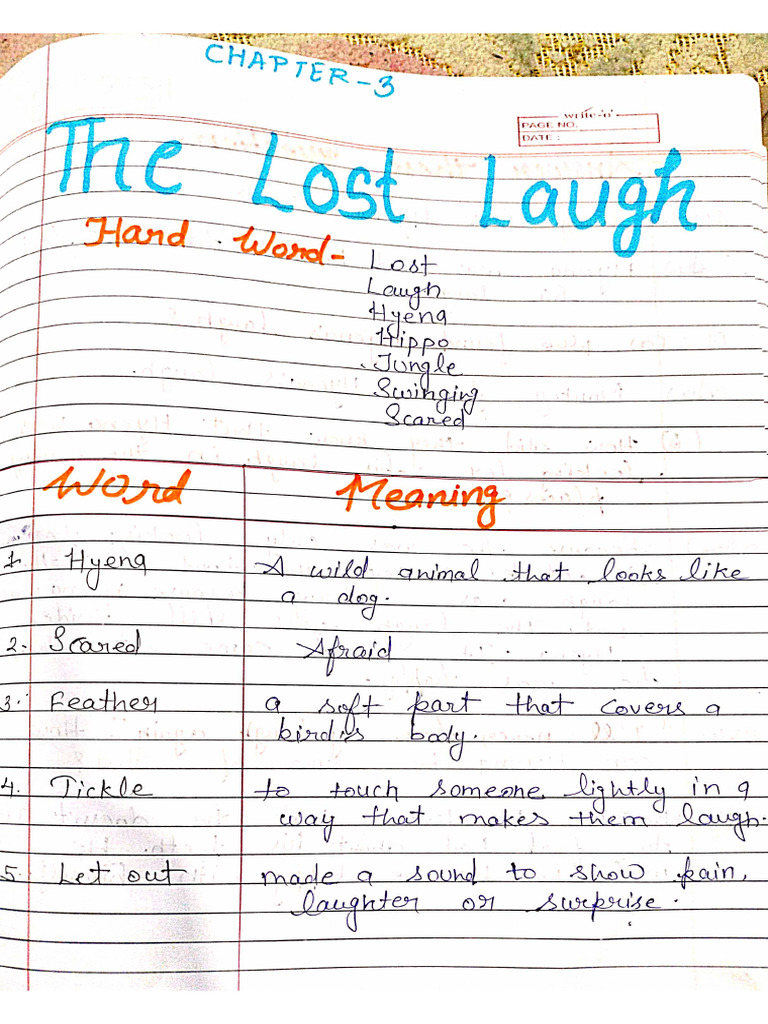 CHAPTER-3
write-'o'
PAGE NO.
DATE :
The Lost Laugh
Hard Word- Lost
Laugh
Hyena
Hippo
Jungle
Swinging
Scared
Word Meaning
1. Hyena A wild animal that looks like
a dog.
2. Scared Afraid
3. Feather a soft part that covers a
bird's body.
4. Tickle to touch someone lightly in a
way that makes them laugh.
5. Let out made a sound to show pain,
laughter or surprise.